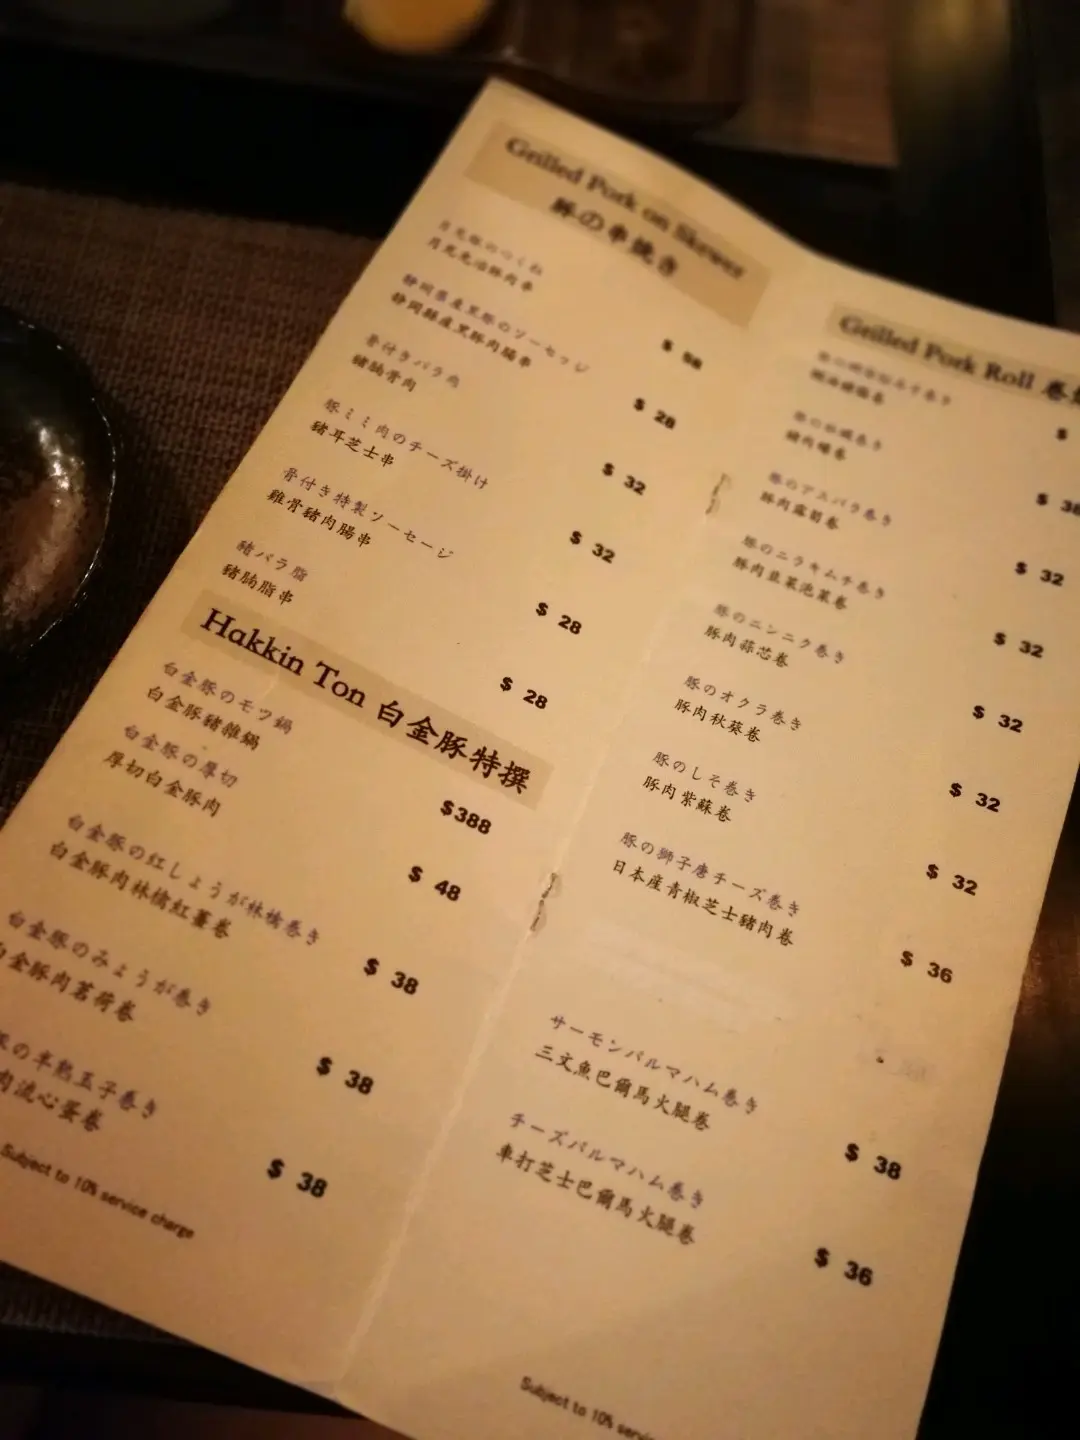 Grilled Pork on Skewer
豚の串焼き
月見豚のつくね
$ 58
静岡県産黒豚のソーセッジ
静岡縣産黒豚肉腸串
$ 28
骨付きバラ肉
豬腩骨肉
$ 32
豚ミミ肉のチーズ掛け
豬耳芝士串
$ 32
骨付き特製ソーセージ
雞骨豬肉腸串
$ 28
豬バラ脂
豬腩脂串
$ 28
Hakkin Ton 白金豚特撰
白金豚のモツ鍋
白金豚豬雜鍋
$388
白金豚の厚切
厚切白金豚肉
$ 48
白金豚の紅しょうが林檎巻き
白金豚肉林檎紅薑卷
$ 38
白金豚のみょうが巻き
白金豚肉茗荷卷
$ 38
豚の半熟玉子巻き
肉流心蛋卷
$ 38
Subject to 10% service charge
Grilled Pork Roll
$
$ 36
豚のアスパラ巻き
豚肉露荀卷
$ 32
豚のニラキムチ巻き
豚肉韮菜泡菜卷
$ 32
豚のニンニク巻き
豚肉蒜芯卷
$ 32
豚のオクラ巻き
豚肉秋葵卷
$ 32
豚のしそ巻き
豚肉紫蘇卷
$ 32
豚の獅子唐チーズ巻き
日本産青椒芝士豬肉卷
$ 36
サーモンパルマハム巻き
三文魚巴爾馬火腿卷
$ 38
チーズパルマハム巻き
車打芝士巴爾馬火腿卷
$ 36
Subject to 10% servi